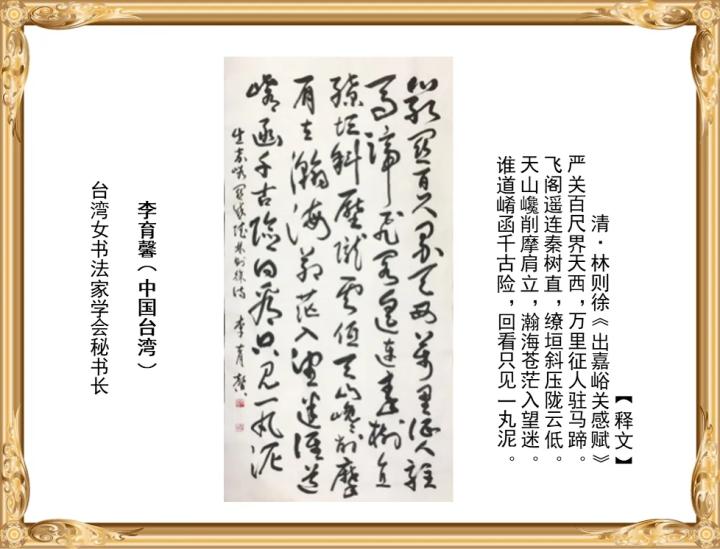 【释文】
清·林则徐《出嘉峪关感赋》
严关百尺界天西，万里征人驻马蹄。
飞阁遥连秦树直，缭垣斜压陇云低。
天山巉削摩肩立，瀚海苍茫入望迷。
谁道崤函千古险，回看只见一丸泥。
嚴關百尺界天西萬里征人駐
馬蹄飛閣遙連秦樹直
繚垣斜壓隴雲低天山巉削摩
肩立瀚海蒼茫入望迷誰道
崤函千古險回看只見一丸泥
出嘉峪關感賦 林則徐詩 李育馨
李育馨（中国台湾）
台湾女书法家学会秘书长